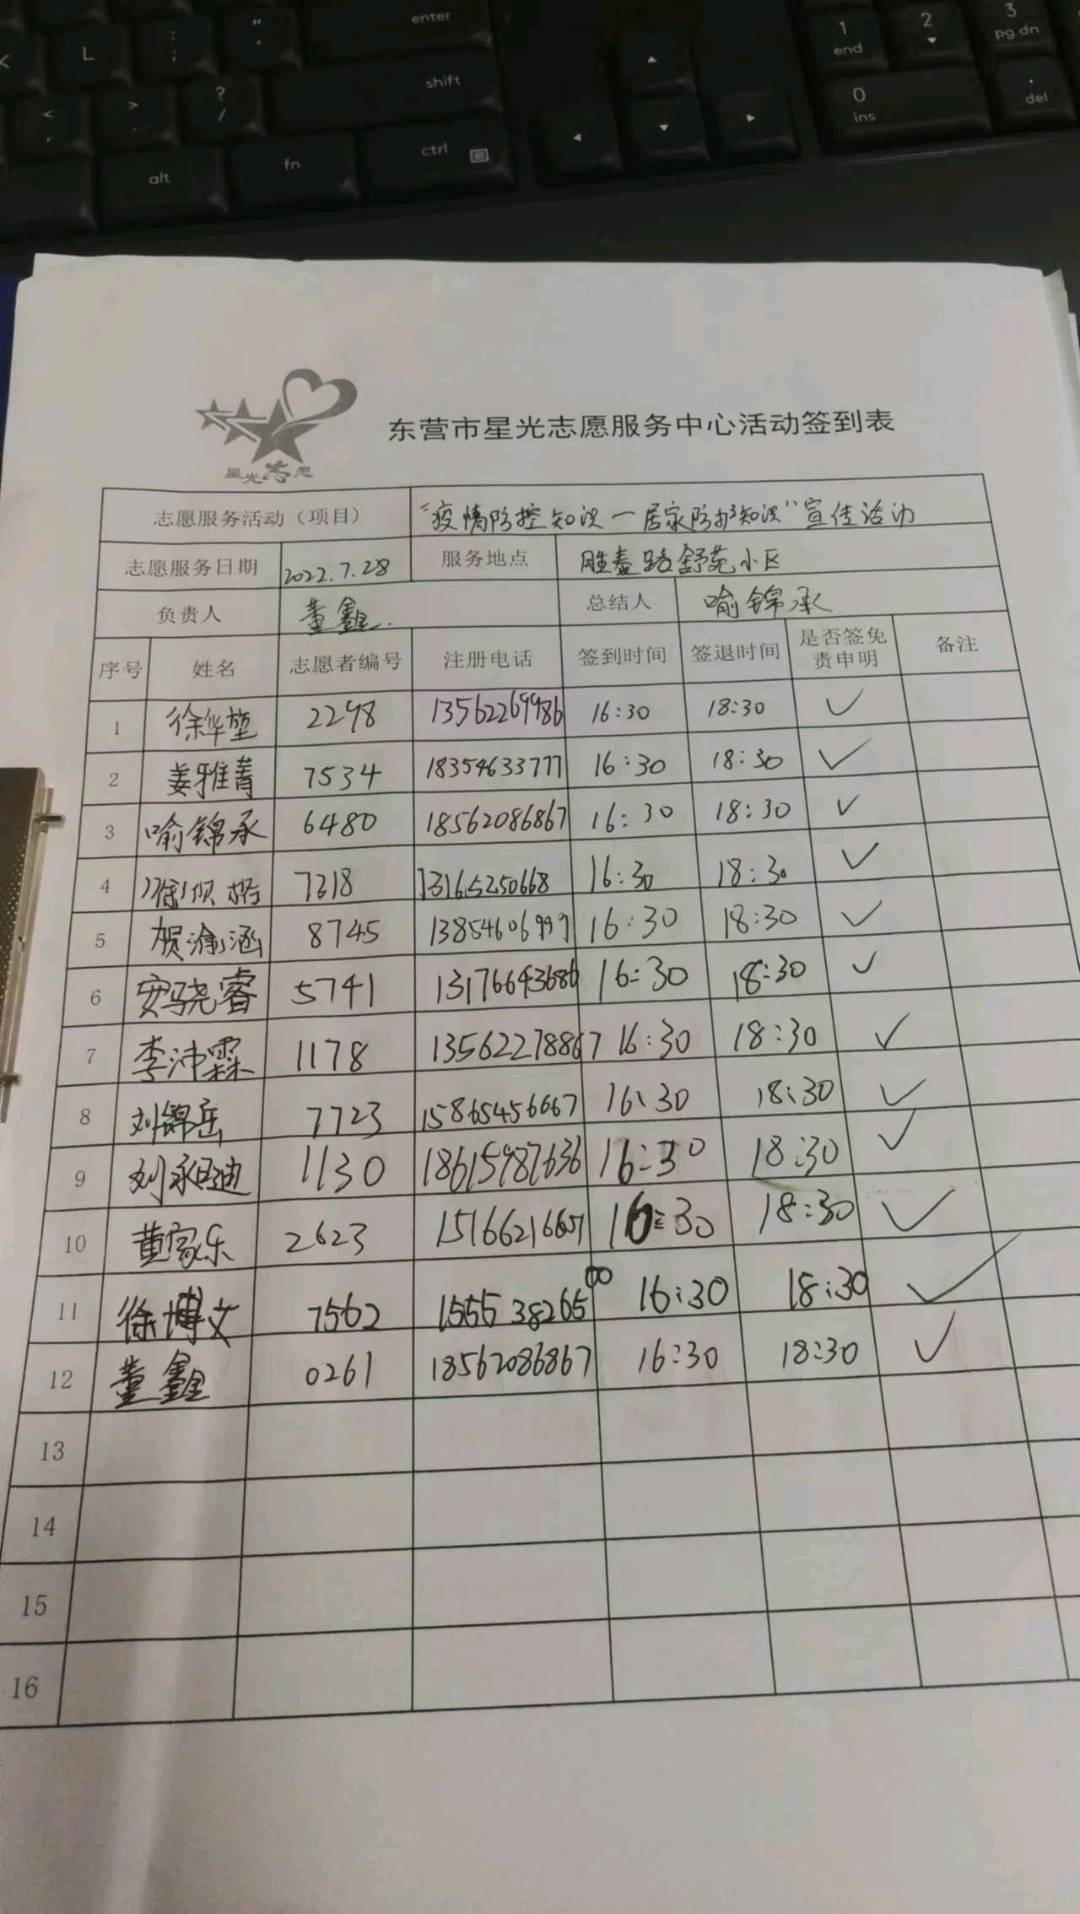 enter
L
: ;
" '
shift
< ,
> .
? /
alt
fn
ctrl
1 end
2
3 pg dn
0 ins
. del
星光志愿
东营市星光志愿服务中心活动签到表
志愿服务活动（项目） "疫情防控知识—居家防护知识"宣传活动
志愿服务日期 2022.7.28 服务地点 胜泰路舒苑小区
负责人 董鑫 总结人 喻锦承
序号 姓名 志愿者编号 注册电话 签到时间 签退时间 是否签免责申明 备注
1 徐华堃 2298 13562269986 16:30 18:30 ✓
2 姜雅菁 7534 18354633777 16:30 18:30 ✓
3 喻锦承 6480 18562086867 16:30 18:30 ✓
4 7318 13165250668 16:30 18:30 ✓
5 贺渝涵 8745 13854606999 16:30 18:30 ✓
6 安骁睿 5741 13176643686 16:30 18:30 ✓
7 李沛霖 1178 13562278867 16:30 18:30 ✓
8 刘锦岳 7723 15865456667 16:30 18:30 ✓
9 1130 18615987636 16:30 18:30 ✓
10 黄家乐 2623 15166216651 16:30 18:30 ✓
11 徐博文 7562 15553826500 16:30 18:30 ✓
12 董鑫 0261 18562086867 16:30 18:30 ✓
13
14
15
16